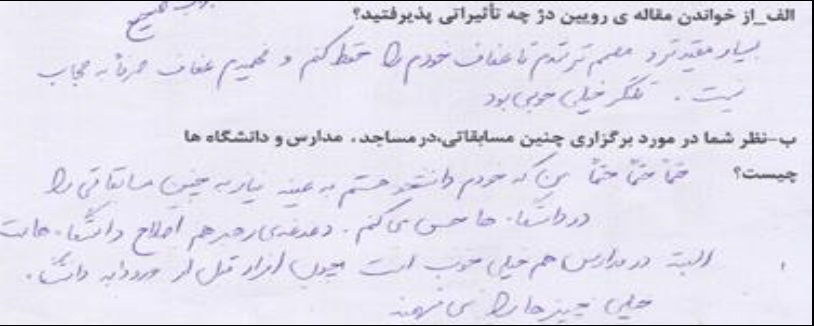 الف_از خواندن مقاله ی رویین دژ چه تأثیراتی پذیرفتید؟
بسیار مفیدتر و مصمم تر شدم تا عفاف خودم را حفظ کنم و فهمیدم عفاف صرفاً به حجاب
نیست. تلنگر خیلی خوبی بود
ب-نظر شما در مورد برگزاری چنین مسابقاتی،درمساجد، مدارس و دانشگاه ها
چیست؟ حتماً حتماً حتماً من که خودم دانشجو هستم به عینه نیاز به چنین مسابقاتی را
در دانشگاه ها حس می کنم. دغدغه ی رهبر هم اصلاح دانشگاه هاست
البته در مدارس هم خیلی خوب است چون افراد قبل از ورود به دانشگاه
خیلی چیزها را می فهمند